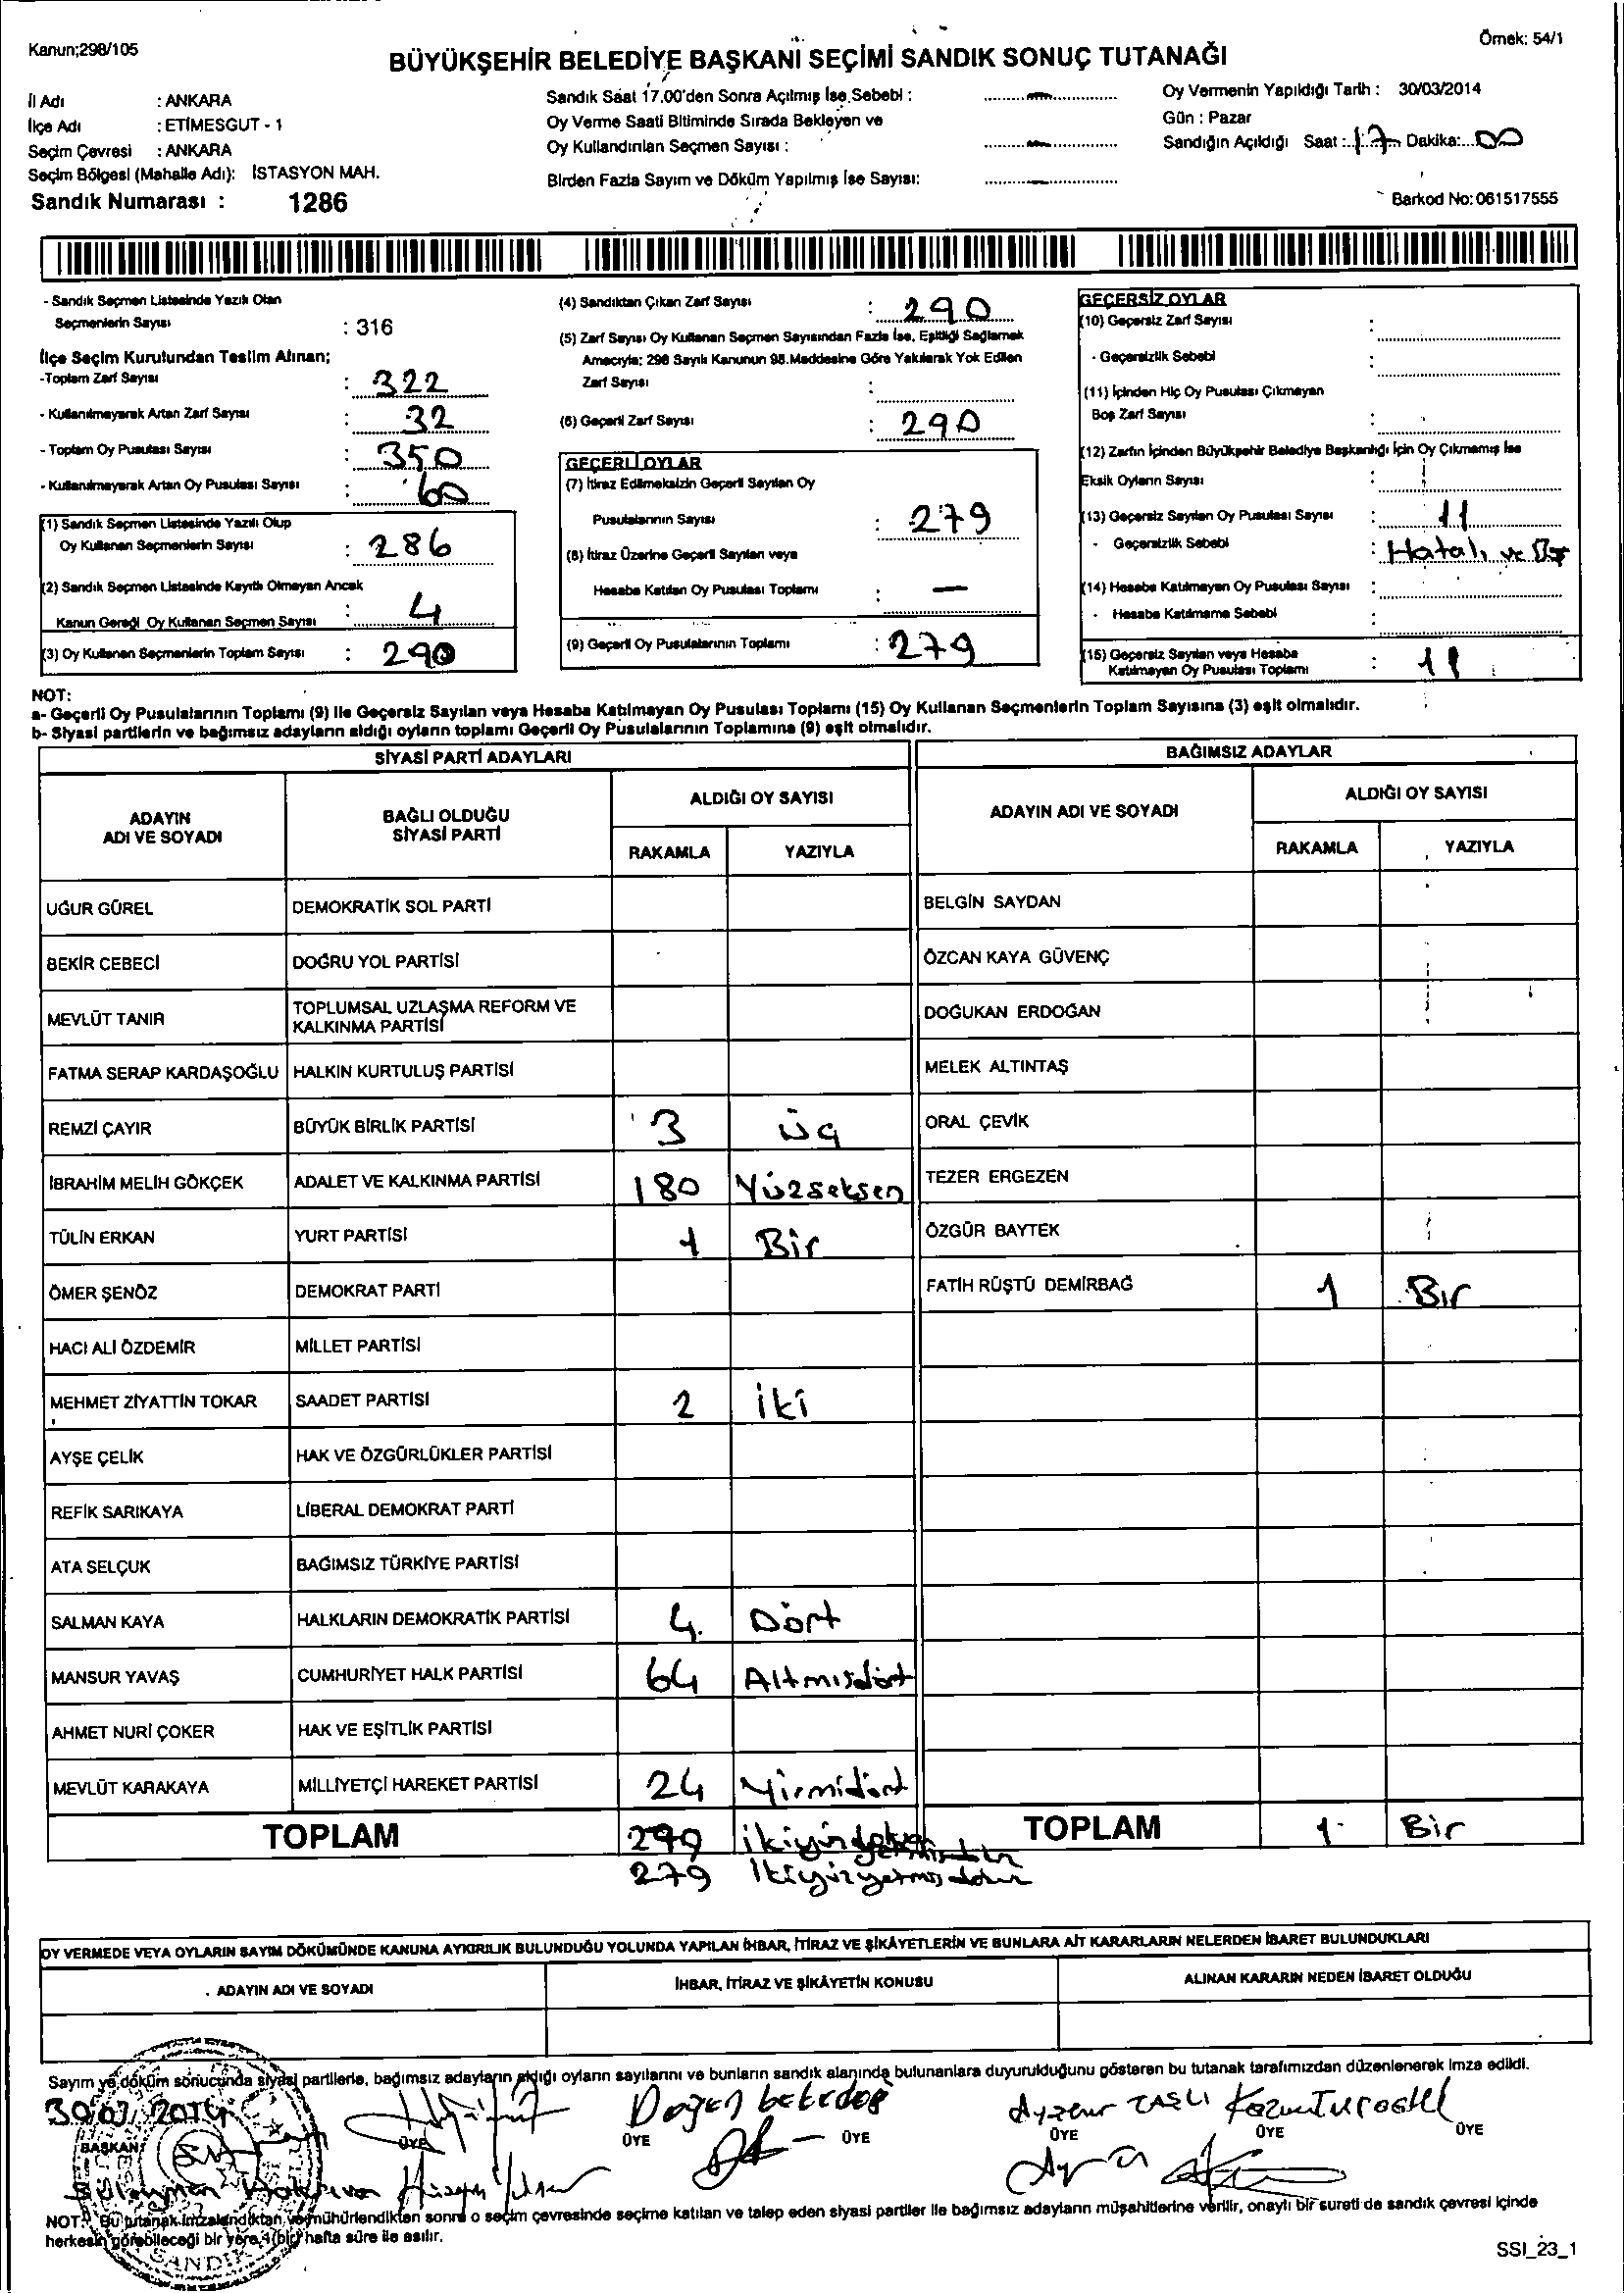 Kanun;298/105
Örnek: 54/1
BÜYÜKŞEHİR BELEDİYE BAŞKANI SEÇİMİ SANDIK SONUÇ TUTANAĞI
İl Adı : ANKARA
İlçe Adı : ETİMESGUT - 1
Seçim Çevresi : ANKARA
Seçim Bölgesi (Mahalle Adı): İSTASYON MAH.
Sandık Numarası : 1286
Sandık Saat 17.00'den Sonra Açılmış İse Sebebi :
Oy Verme Saati Bitiminde Sırada Bekleyen ve
Oy Kullandırılan Seçmen Sayısı :
Birden Fazla Sayım ve Döküm Yapılmış İse Sayısı:
Oy Vermenin Yapıldığı Tarih : 30/03/2014
Gün : Pazar
Sandığın Açıldığı Saat : 17 Dakika: 00
Barkod No: 061517555
- Sandık Seçmen Listesinde Yazılı Olan
Seçmenlerin Sayısı : 316
İlçe Seçim Kurulundan Teslim Alınan;
-Toplam Zarf Sayısı : 322
- Kullanılmayarak Artan Zarf Sayısı : 32
- Toplam Oy Pusulası Sayısı : 350
- Kullanılmayarak Artan Oy Pusulası Sayısı : 60
(1) Sandık Seçmen Listesinde Yazılı Olup
Oy Kullanan Seçmenlerin Sayısı : 286
(2) Sandık Seçmen Listesinde Kayıtlı Olmayan Ancak
Kanun Gereği Oy Kullanan Seçmen Sayısı : 4
(3) Oy Kullanan Seçmenlerin Toplam Sayısı : 290
(4) Sandıktan Çıkan Zarf Sayısı : 290
(5) Zarf Sayısı Oy Kullanan Seçmen Sayısından Fazla İse, Eşitliği Sağlamak
Amacıyla; 298 Sayılı Kanunun 98.Maddesine Göre Yakılarak Yok Edilen
Zarf Sayısı :
(6) Geçerli Zarf Sayısı : 290
GEÇERLİ OYLAR
(7) İtiraz Edilmeksizin Geçerli Sayılan Oy
Pusulalarının Sayısı : 279
(8) İtiraz Üzerine Geçerli Sayılan veya
Hesaba Katılan Oy Pusulası Toplamı : —
(9) Geçerli Oy Pusulalarının Toplamı : 279
GEÇERSİZ OYLAR
(10) Geçersiz Zarf Sayısı :
- Geçersizlik Sebebi :
(11) İçinden Hiç Oy Pusulası Çıkmayan
Boş Zarf Sayısı :
(12) Zarfın İçinden Büyükşehir Belediye Başkanlığı İçin Oy Çıkmamış İse
Eksik Oyların Sayısı :
(13) Geçersiz Sayılan Oy Pusulası Sayısı : 11
- Geçersizlik Sebebi : Hatalı ve
(14) Hesaba Katılmayan Oy Pusulası Sayısı :
- Hesaba Katılmama Sebebi :
(15) Geçersiz Sayılan veya Hesaba
Katılmayan Oy Pusulası Toplamı : 11
NOT:
a- Geçerli Oy Pusulalarının Toplamı (9) ile Geçersiz Sayılan veya Hesaba Katılmayan Oy Pusulası Toplamı (15) Oy Kullanan Seçmenlerin Toplam Sayısına (3) eşit olmalıdır.
b- Siyasi partilerin ve bağımsız adayların aldığı oyların toplamı Geçerli Oy Pusulalarının Toplamına (9) eşit olmalıdır.
SİYASİ PARTİ ADAYLARI
BAĞIMSIZ ADAYLAR
ADAYIN ADI VE SOYADI
BAĞLI OLDUĞU SİYASİ PARTİ
ALDIĞI OY SAYISI
RAKAMLA YAZIYLA
ADAYIN ADI VE SOYADI
ALDIĞI OY SAYISI
RAKAMLA YAZIYLA
UĞUR GÜREL DEMOKRATİK SOL PARTİ BELGİN SAYDAN
BEKİR CEBECİ DOĞRU YOL PARTİSİ ÖZCAN KAYA GÜVENÇ
MEVLÜT TANIR TOPLUMSAL UZLAŞMA REFORM VE KALKINMA PARTİSİ DOĞUKAN ERDOĞAN
FATMA SERAP KARDAŞOĞLU HALKIN KURTULUŞ PARTİSİ MELEK ALTINTAŞ
REMZİ ÇAYIR BÜYÜK BİRLİK PARTİSİ 3 üç ORAL ÇEVİK
İBRAHİM MELİH GÖKÇEK ADALET VE KALKINMA PARTİSİ 180 Yüzseksen TEZER ERGEZEN
TÜLİN ERKAN YURT PARTİSİ 1 Bir ÖZGÜR BAYTEK
ÖMER ŞENÖZ DEMOKRAT PARTİ FATİH RÜŞTÜ DEMİRBAĞ 1 Bir
HACI ALİ ÖZDEMİR MİLLET PARTİSİ
MEHMET ZİYATTİN TOKAR SAADET PARTİSİ 2 iki
AYŞE ÇELİK HAK VE ÖZGÜRLÜKLER PARTİSİ
REFİK SARIKAYA LİBERAL DEMOKRAT PARTİ
ATA SELÇUK BAĞIMSIZ TÜRKİYE PARTİSİ
SALMAN KAYA HALKLARIN DEMOKRATİK PARTİSİ 4 Dört
MANSUR YAVAŞ CUMHURİYET HALK PARTİSİ 64 Altmışdört
AHMET NURİ ÇOKER HAK VE EŞİTLİK PARTİSİ
MEVLÜT KARAKAYA MİLLİYETÇİ HAREKET PARTİSİ 24 Yirmidört
TOPLAM 299 TOPLAM 1 Bir
279 ikiyüzyetmişdokuz
OY VERMEDE VEYA OYLARIN SAYIM DÖKÜMÜNDE KANUNA AYKIRILIK BULUNDUĞU YOLUNDA YAPILAN İHBAR, İTİRAZ VE ŞİKÂYETLERİN VE BUNLARA AİT KARARLARIN NELERDEN İBARET BULUNDUKLARI
ADAYIN ADI VE SOYADI İHBAR, İTİRAZ VE ŞİKÂYETİN KONUSU ALINAN KARARIN NEDEN İBARET OLDUĞU
Sayım ve döküm sonucunda siyasi partilerle, bağımsız adayların aldığı oyların sayılarını ve bunların sandık alanında bulunanlara duyurulduğunu gösteren bu tutanak tarafımızdan düzenlenerek imza edildi.
30/03/2014
BAŞKAN ÜYE ÜYE ÜYE ÜYE ÜYE ÜYE
NOT: Bu tutanak imzalandıktan ve mühürlendikten sonra o seçim çevresinde seçime katılan ve talep eden siyasi partiler ile bağımsız adayların müşahitlerine verilir, onaylı bir sureti de sandık çevresi içinde
herkesin görebileceği bir yere 1(bir) hafta süre ile asılır.
SSI_23_1